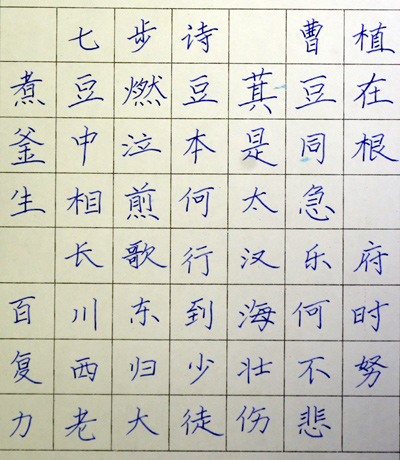 七步诗 曹植
煮豆燃豆萁豆在
釜中泣本是同根
生相煎何太急
长歌行汉乐府
百川东到海何时
复西归少壮不努
力老大徒伤悲